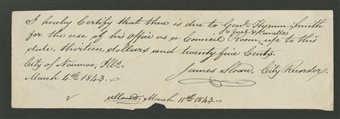 I hereby Certify that there is due to Genl. Hyrum Smith
for the use of his office as a Council Room,
& fuel & Candles
up to this
date, thirteen dollars and twenty five Cents.
City of Nauvoo, Ills.
March 4th 1843.
James Sloan, City Recorder
allowed, March 11th 1843.